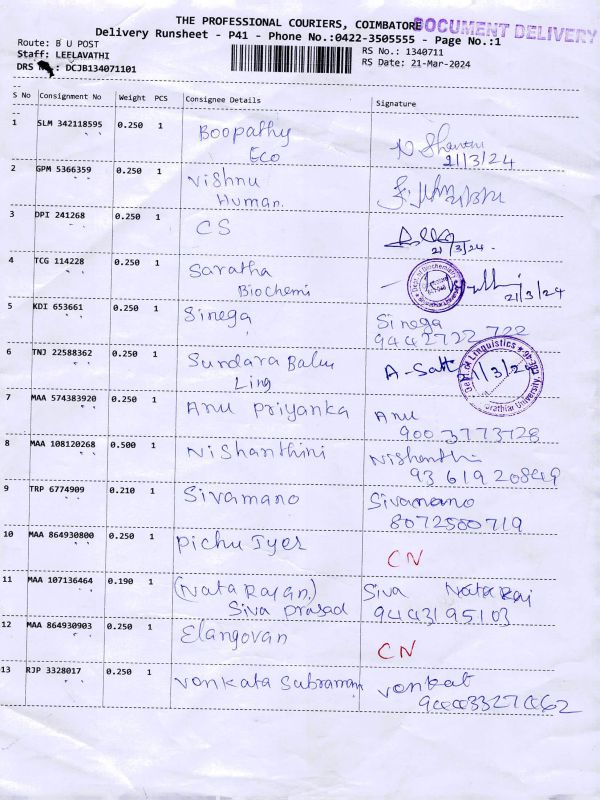 THE PROFESSIONAL COURIERS, COIMBATORE
DOCUMENT DELIVERY
Delivery Runsheet - P41 - Phone No.:0422-3505555 - Page No.:1
Route: B U POST
RS No.: 1340711
Staff: LEELAVATHI
RS Date: 21-Mar-2024
DRS : DCJB134071101
S No Consignment No Weight PCS Consignee Details Signature
1 SLM 342118595 0.250 1 Boopathy
Eco 21/3/24
2 GPM 5366359 0.250 1 Vishnu
Human.
3 DPI 241268 0.250 1 CS
21/3/24.
4 TCG 114228 0.250 1 Saratha
Biochemi 21/3/24
Dept. of Biochemistry
5 KDI 653661 0.250 1 Sinega Sinega
9442722 722
6 TNJ 22588362 0.250 1 Sundara Balu
Ling
Dept. of Linguistics
University
7 MAA 574383920 0.250 1 Anu Priyanka Anu
9003773728
8 MAA 108120268 0.500 1 Nishanthini Nishanthi
93619208
9 TRP 6774909 0.210 1 Sivamano Sivamano
8072500719
10 MAA 864930800 0.250 1 Pichu Iyer CN
11 MAA 107136464 0.190 1 (Natarajan) Siva Nataraj
Siva prasad 9443195103
12 MAA 864930903 0.250 1 Elangovan CN
13 RJP 3328017 0.250 1 Venkata Subraman Venkat